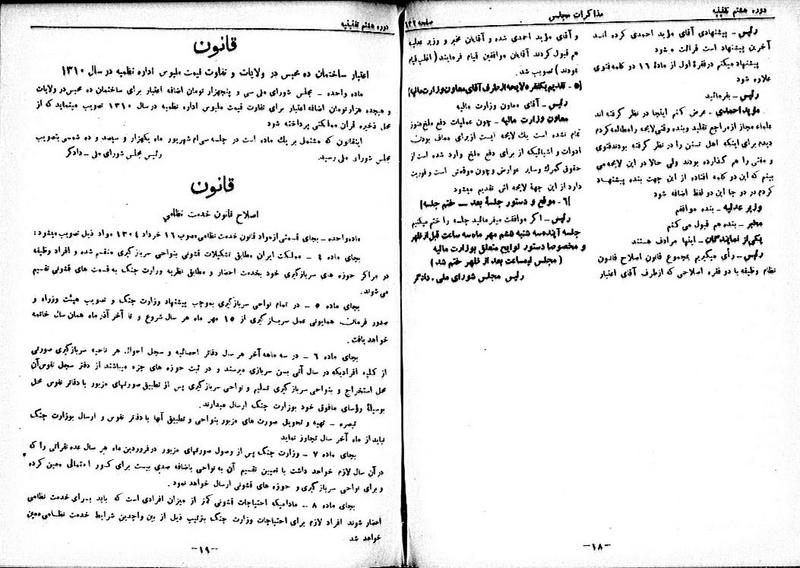 دوره هشتم تقنینیه
مذاکرات مجلس
صفحه ۱۳۶۱
رئیس ـ پیشنهادی آقای مؤید احمدی کرده اند
آخرین پیشنهاد است قرائت میشود
پیشنهاد میکنم در فقرهٔ اول از مادهٔ ۱۶ دو کلمه فتوی
علاوه شود
رئیس ـ بفرمائید
مؤید احمدی ـ عرض کنم اینجا در نظر گرفته اند
علماء مجاز از مراجع تقلید و بنده وقتی لایحه را مطالعه کردم
دیدم برای اینکه اهل تسنن را در نظر گرفته بودند فتوی
و مفتی را هم گذارده بودند ولی حالا در این لایحه می
بینم که این دو کلمه افتاده از این جهت بنده پیشنهاد
کردم در دو جا این دو لفظ اضافه شود
وزیر عدلیه ـ بنده موافقم
مخبر ـ بنده هم قبول می کنم
یکی از نمایندگان ـ اینها مرادف هستند
رئیس ـ رأی میگیریم بمجموع قانون اصلاح قانون
نظام وظیفه با دو فقره اصلاحی که از طرف آقای اعتبار
و آقای مؤید احمدی شده و آقایان مخبر و وزیر عدلیه
هم قبول کردند آقایان موافقین قیام فرمایند (اغلب قیام
نمودند) تصویب شد.
(۵ ـ تقدیم یکفقره لایحه از طرف آقای معاون وزارت مالیه)
رئیس ـ آقای معاون وزارت مالیه
معاون وزارت مالیه ـ چون عملیات دفع ملخ هنوز
تمام نشده است یک لایحه ایست از برای معاف بودن
ادوات و اشیائیکه از برای دفع ملخ وارد شده است از
حقوق گمرک و سایر عوارض و چون موقوف است و فوریت
دارد از این جهة لایحه اش تقدیم میشود
[۶ ـ موقع و دستور جلسهٔ بعد ـ ختم جلسه]
رئیس ـ اگر موافقت میفرمائید جلسه را ختم میکنیم
جلسه آینده سه شنبه ششم مهر ماه سه ساعت قبل از ظهر
و مخصوصا دستور لوایح متعلق بوزارت مالیه
(مجلس نیمساعت بعد از ظهر ختم شد)
رئیس مجلس شورای ملی ـ دادگر
ـ۱۸ـ
دوره هشتم تقنینیه
قانون
اعتبار ساختمان ده محبس در ولایات و تفاوت قیمت ملبوس اداره نظمیه در سال ۱۳۱۰
ماده واحده ـ مجلس شورای ملی سی و پنجهزار تومان اضافه اعتبار برای ساختمان ده محبس در ولایات
و هیجده هزار تومان اضافه اعتبار برای تفاوت قیمت ملبوس اداره نظمیه در سال ۱۳۱۰ تصویب مینماید که از
محل ذخیره قران مملکتی پرداخته شود
اینقانون که مشتمل بر یک ماده است در جلسه سی ام شهریور ماه یکهزار و سیصد و ده شمسی بتصویب
مجلس شورای ملی رسید.
رئیس مجلس شورای ملی ـ دادگر
قانون
اصلاح قانون خدمت نظامی
ماده واحده ـ بجای قسمتی از مواد قانون خدمت نظامی مصوب ۱۶ خرداد ۱۳۰۴ مواد ذیل تصویب میشود:
بجای ماده ۴ ـ مملکت ایران مطابق تشکیلات قشونی بنواحی سربازگیری منقسم شده و افراد وظیفه
در مراکز حوزه های سربازگیری خود بخدمت احضار و مطابق نظریه وزارت جنگ به قسمت های قشونی تقسیم
می شوند.
بجای ماده ۵ ـ در تمام نواحی سربازگیری بموجب پیشنهاد وزارت جنگ و تصویب هیئت وزراء و
صدور فرمان همایونی عمل سربازگیری از ۱۵ مهر ماه هر سال شروع و تا آخر آذر ماه همان سال خاتمه
خواهد یافت.
بجای ماده ۶ ـ در سه ماهه آخر هر سال دفاتر احصائیه و سجل احوال هر ناحیه سربازگیری صورتی
از کلیه افرادیکه در سال آتی بسن سربازی میرسند و در ثبت حوزه های جزء میباشند از دفتر سجل نفوس آن
محل استخراج و بنواحی سربازگیری تسلیم و نواحی سربازگیری پس از تطبیق صورتهای مزبور با دفاتر نفوس محل
بوسیلهٔ رؤسای مافوق خود بوزارت جنگ ارسال میدارند.
تبصره ـ تهیه و تحویل صورت های مزبور بنواحی و تطبیق آنها با دفاتر نفوس و ارسال بوزارت جنگ
نباید از ماه آخر سال تجاوز نماید
بجای ماده ۷ ـ وزارت جنگ پس از وصول صورتهای مزبور در فروردین ماه هر سال عده نفراتی را که
در آن سال لازم خواهد داشت با تعیین تقسیم آن به نواحی باضافه صدی بیست برای کسور احتمالی معین کرده
و برای نواحی سربازگیری و حوزه های قشونی ارسال خواهد نمود.
بجای ماده ۸ ـ مادامیکه احتیاجات قشونی کمتر از میزان افرادی است که باید برای خدمت نظامی
احضار شوند افراد لازم برای احتیاجات وزارت جنگ بترتیب ذیل از بین واجدین شرایط خدمت نظامی معین
خواهد شد
ـ۱۹ـ